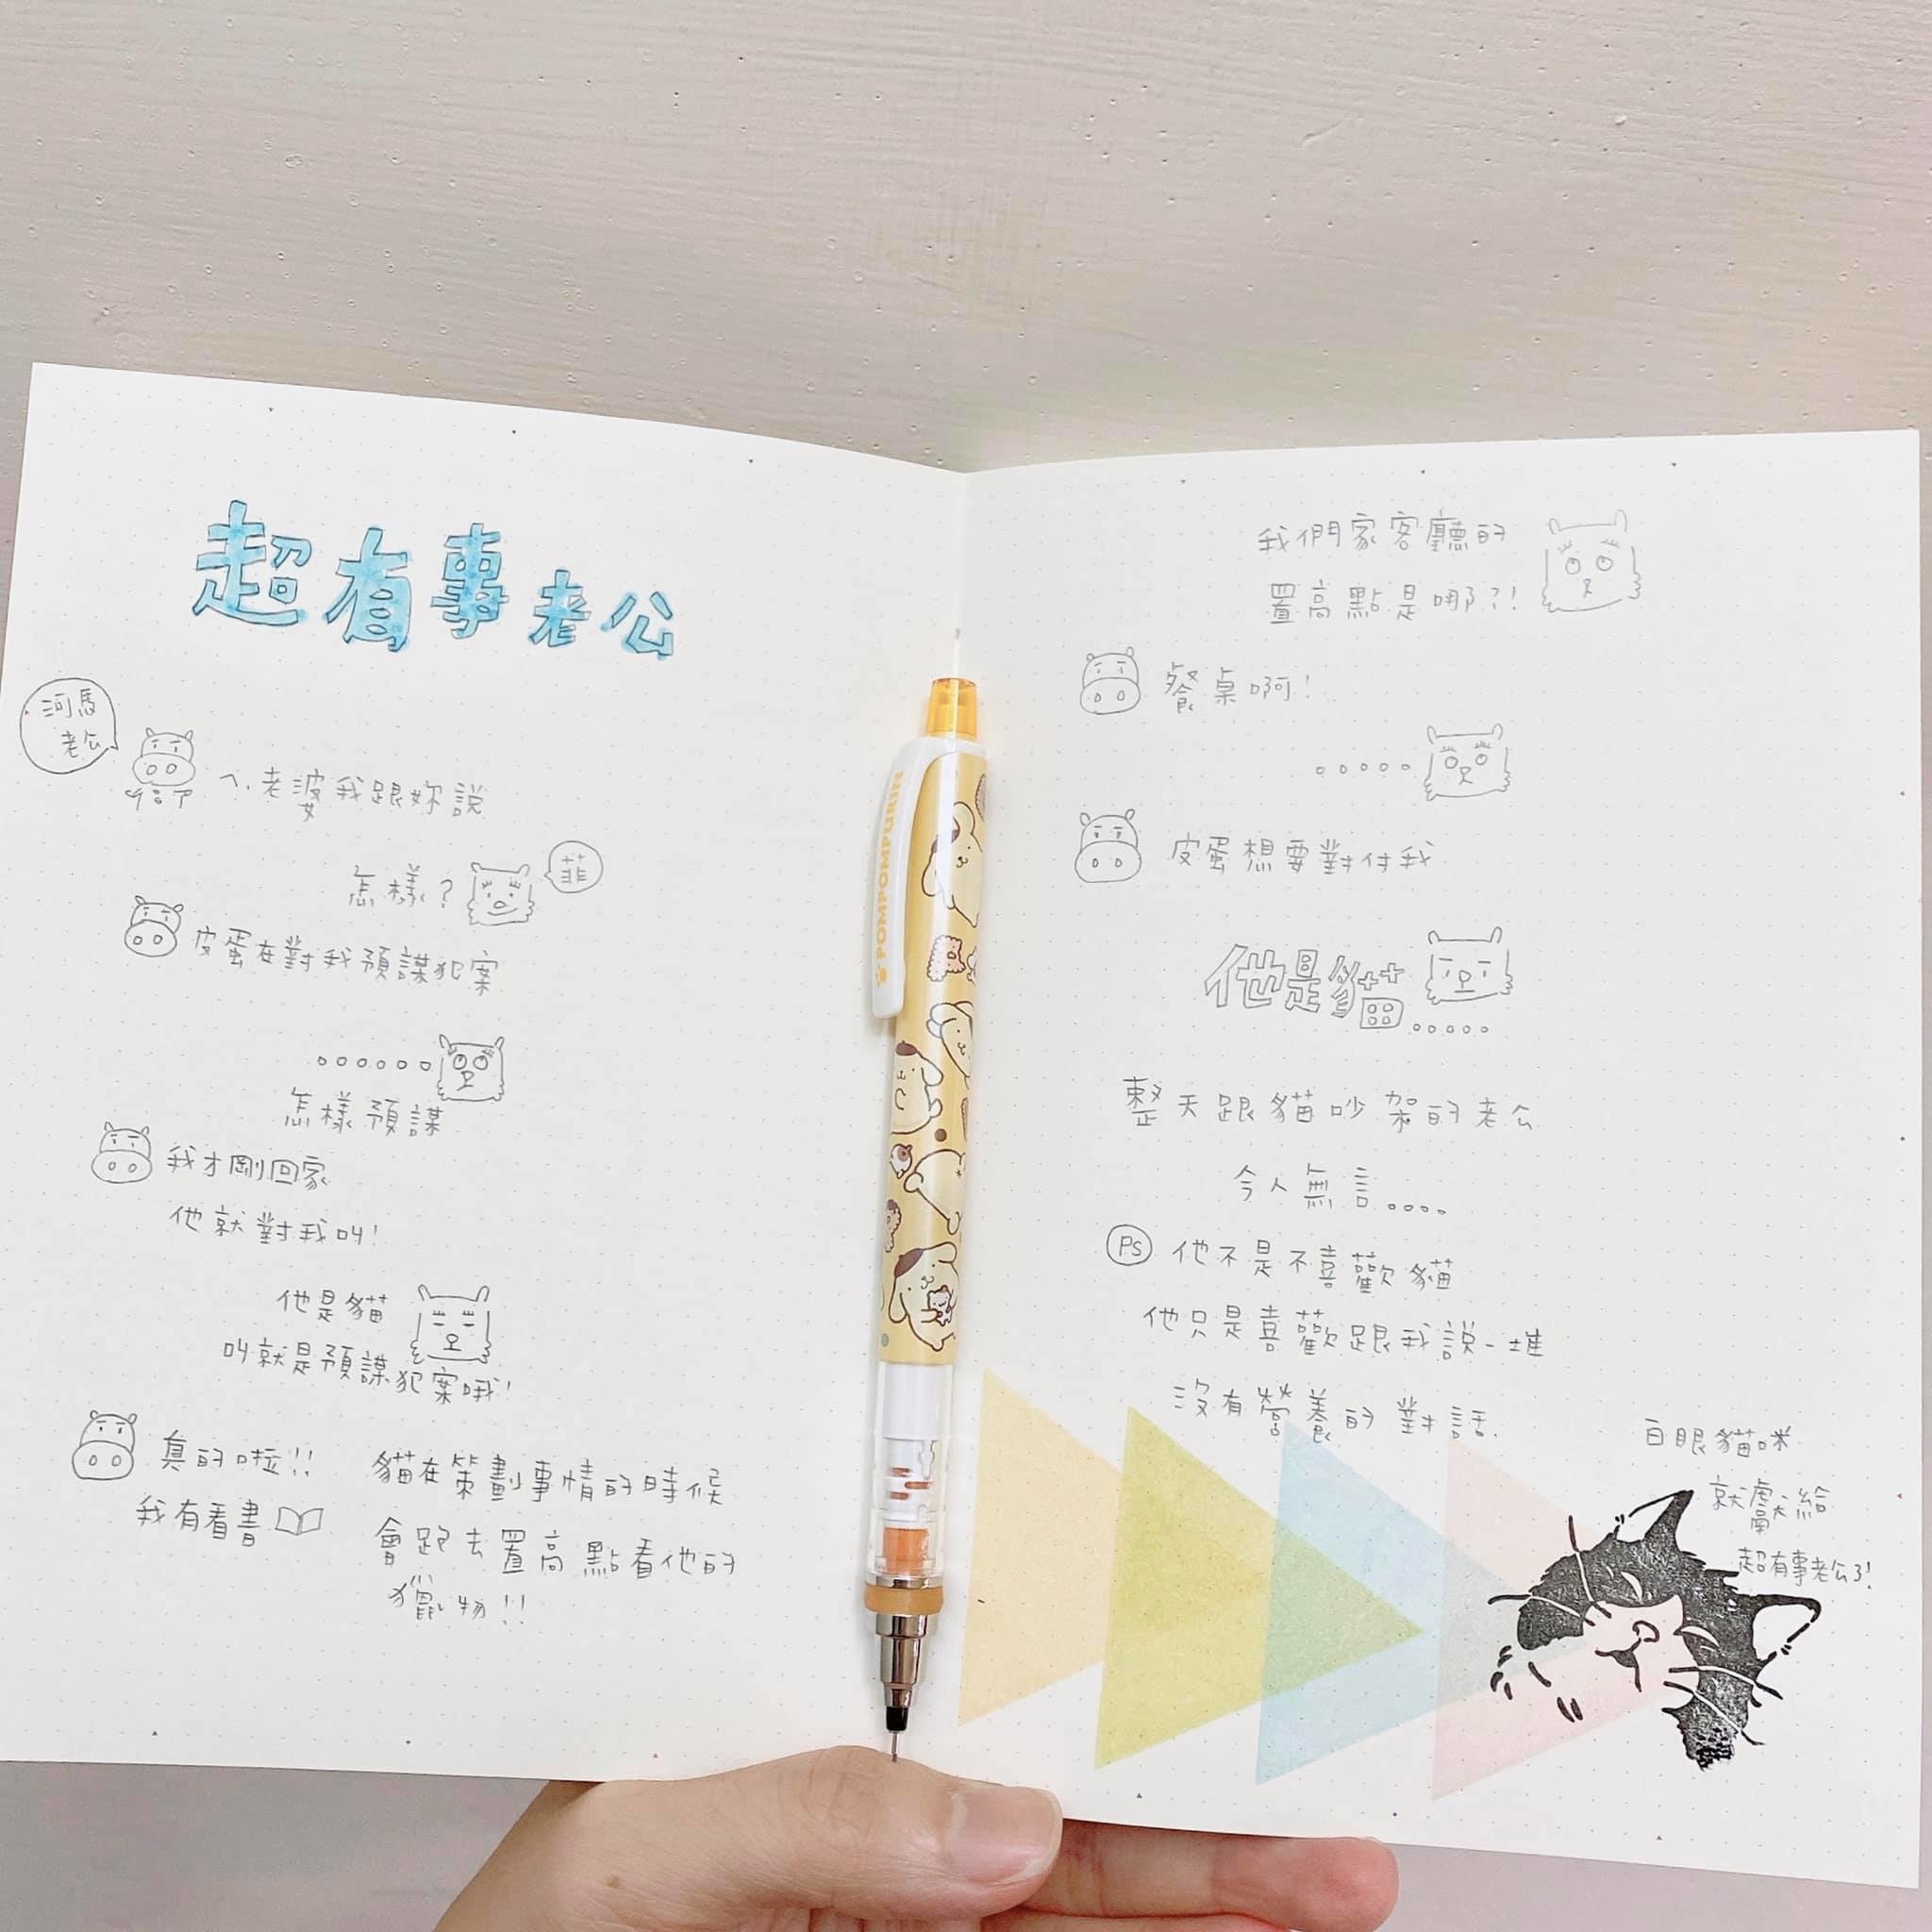 超有事老公
河馬
老公
ㄟ、老婆我跟妳說
怎樣?
菲
皮蛋在對我預謀犯案
。。。。。。
怎樣預謀
我才剛回家
他就對我叫!
他是貓
叫就是預謀犯案哦!
真的啦!!
我有看書
貓在策劃事情的時候
會跑去置高點看他的
獵物!!
POMPOMPURIN
我們家客廳的
置高點是哪?!
餐桌啊!
。。。。。
皮蛋想要對付我
他是貓。。。。。
整天跟貓吵架的老公
令人無言。。。。
PS 他不是不喜歡貓
他只是喜歡跟我說一堆
沒有營養的對話.
白眼貓咪
就獻給
超有事老公了!